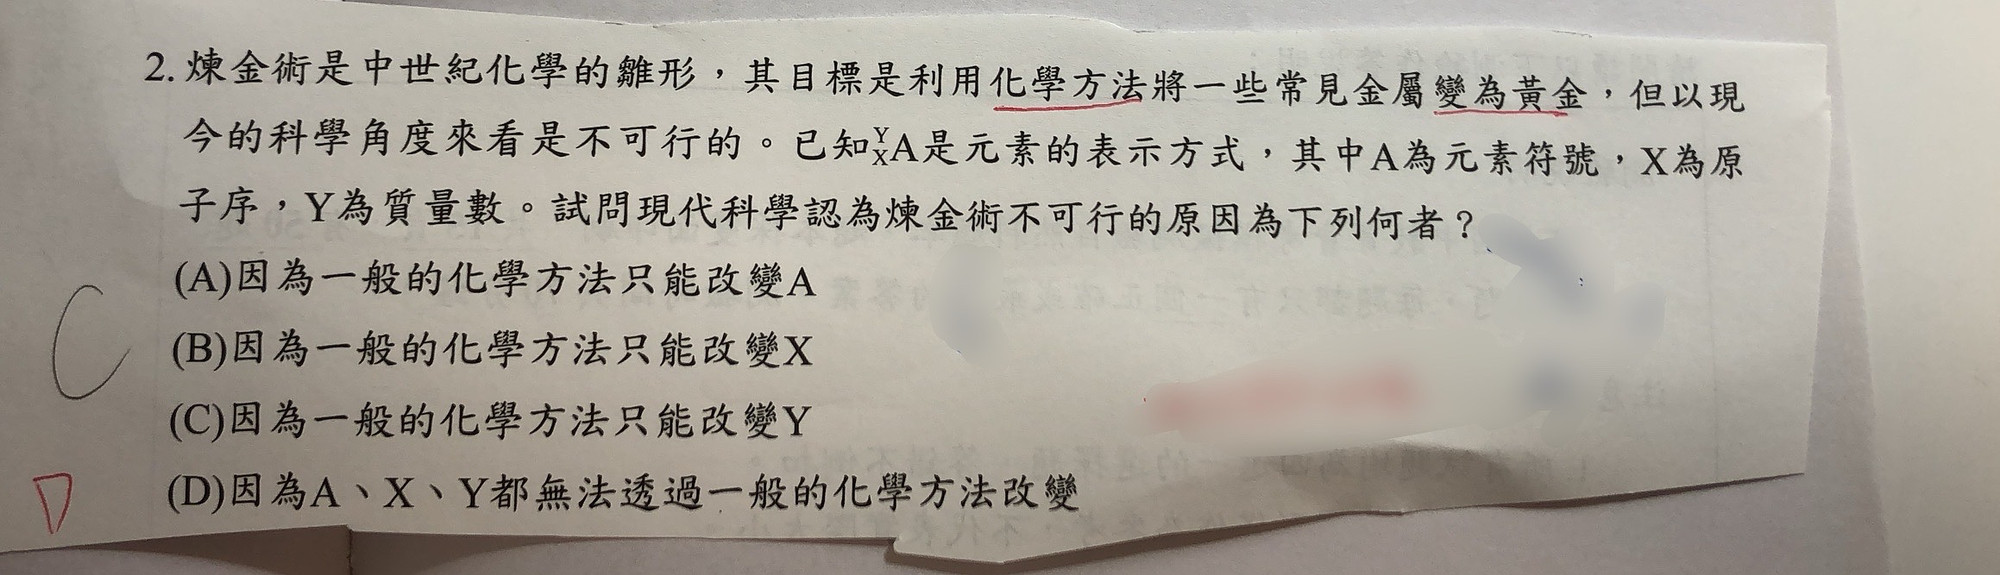 2. 煉金術是中世紀化學的雛形，其目標是利用化學方法將一些常見金屬變為黃金，但以現
今的科學角度來看是不可行的。已知YXA是元素的表示方式，其中A為元素符號，X為原
子序，Y為質量數。試問現代科學認為煉金術不可行的原因為下列何者？
(A)因為一般的化學方法只能改變A
C
(B)因為一般的化學方法只能改變X
(C)因為一般的化學方法只能改變Y
D
(D)因為A、X、Y都無法透過一般的化學方法改變